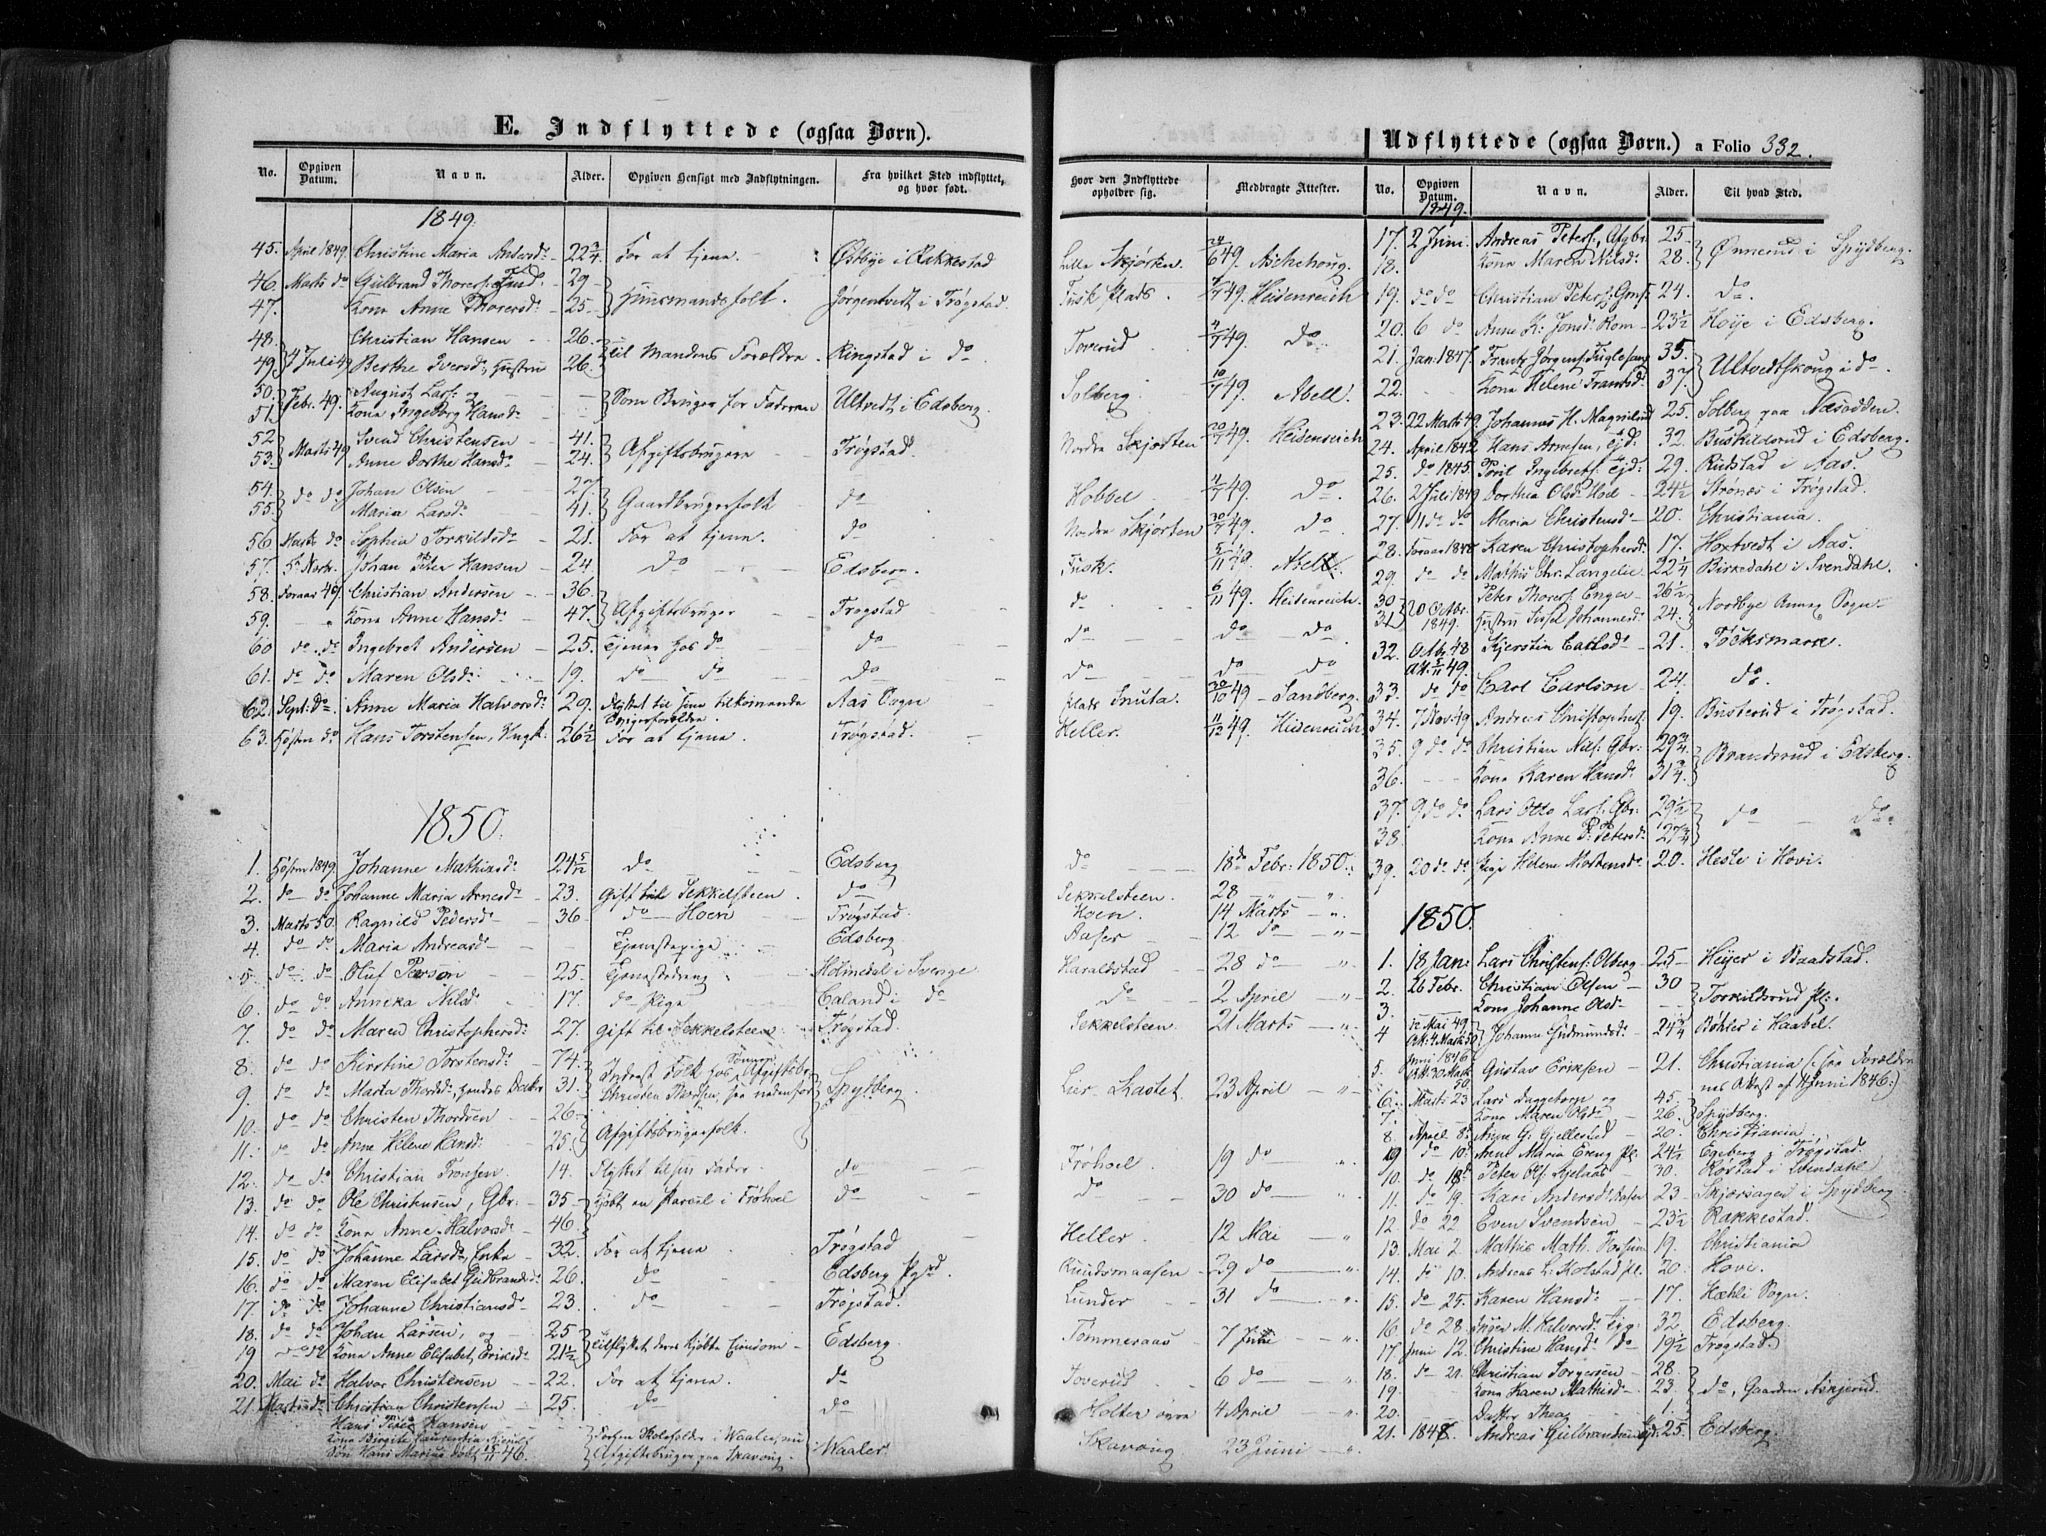 E. Indflyttede (ogsaa Børn).
Udflyttede (ogsaa Børn.) a Folio 332.
No. Opgiven Datum. Navn. Alder. Opgiven Hensigt med Indflytningen. Fra hvilket Sted indflyttet, og hvor født.
Hvor den Indflyttede opholder sig. Medbragte Attester. No. Opgiven Datum. Navn. Alder. Til hvad Sted.
1849.
45. April 1849. Christine Maria Andersd: 22 3/4 For at tjene. Østbye i Rakkestad
46. Marts do Gulbrand Thorers: 29
47. Kona Anne Thorersd: 25 Huusmandsfolk. Jørgentvedt i Trøgstad
48. Christian Hansen 26.
49. 4 Juli 49 Berthe Iversd:, Hustru 26. til Mandens Forældre. Ringstad i do
50. August Lars: og
51. Febr. 49. Kona Ingeborg Hansd: Som Bruger for Faderen Ultvedt i Edsberg.
52. Svend Christensen 41.
53. Marts 49 Anne Dorthe Hansd: 24. Afgiftsbrugere Trøgstad.
54. Johan Olsen 27.
55. do do Maria Larsd: 41. Gaardbrugerfolk do
56. Marts do Sophia Torkildsd: 21. For at tjene. do
57. 5 Novbr. Johan Peter Hansen 24. do Edsberg.
58. Foraar 49. Christian Andersen 36.
59. Kona Anne Hansd: 47. Afgiftsbruger Trøgstad
60. do do Ingebret Andersen 25. Tjener hos do do
61. do do Maren Olsd: 19. do do do
62. Sept: do Anne Maria Halvorsd: 29. Flyttet til sine tilkommende Svigerforældre. Aas Sogn
63. Høsten do Hans Torstensen, Ungk: 26 1/2 For at tjene. Trøgstad.
1850.
1. Høsten 1849. Johanne Mathisd: 24 5/12 do Edsberg
2. do do Johanne Maria Arnesd: 23. Gift til Sekkelsteen do
3. Marts 50. Ragnild Pedersd: 36 do Hoen Trøgstad.
4. do do Maria Andreasd: Tjenestepige Edsberg.
5. do do Oluf Person 25. Tjenestedreng Holmedal i Sverige
6. do do Annika Nilsd: 17. do Pige Caland i do
7. do do Maren Christophersd: 27. Gift til Sekkelsteen Trøgstad.
8. do do Kirstine Torstensd: 74.
9. do do Marta Thordsd:, hendes Datter 31. Inderst Folk hos Sønnen Afgiftsbr. Christen Thordsen, see nedenfor Spydberg
10. do do Christen Thordsen 26.
11. do do Anne Helene Hansd: 25. Afgiftsbrugerfolk.
12. do do Christian Tronsen. 14. Flyttet til sin Fader. do
13. do do Ole Christensen, Gbr. 35 Kjøbt en Parcel i Frøhoel do
14. do do Kona Anne Halvorsd: 46.
15. do do Johanne Larsd:, Enke 32. For at tjene Trøgstad
16. do do Maren Elisabet Gulbrandsd: 26. do Edsberg Pgjd.
17. do do Johanne Christiansd: 23. do Trøgstad.
18. do do Johan Larsen, og 25
19. do do Kona Anne Elisabet Eriksd: 21 1/2 tilflyttet deres kjøbte Eiendom Edsberg.
20. Mai do Halvor Christensen 22. For at tjene. do
21. Christian Christensen 25. do do
Hans Peter Hansen
Kona Birgite Laurentia
Søn Hans Marius født 46. Skoleholder i Waaler, nu Afgiftsbruger paa Skavøug. Waaler.
Lille Skjørten. 24/6 49. Aschehoug.
Fusk Plads. 49. Heidenreich
Toverud 49. do
Solberg 49. Abell.
Nordre Skjørten 20/7 49. Heidenreich
Hobbel 49. do.
Nordre Skjørten 30/7 49. do
Fusk. 5/11 49. Abell.
do 6/11 49. Heidenreich.
do do do
do do do
Plads Snuta. 30/10 49 Sandberg.
Heller. 11/12 49. Heidenreich
do 18de Febr: 1850.
Sekkelsteen 28
Hoen. 14 Marts
Aaser 12 do
Haraldstad 28 do
do 2 April
Sekkelsteen 21 Marts
Leir-Kastet 23 April
Frøhoel 19 do
do 30 do
Heller 12 Mai
Ruudsmaasen 29 do
Lunder 31 do
Tømmeraas 7 Juni
Toverud 6 do
Holter øvre 4 April
Skavøug 23 Juni
1849.
17. 2 Juni. Andreas Peters:, Afgbr. 25
18. Kona Maren Nilsd: 28. Ønnerud i Spydberg.
19. do do Christian Peters: 24. do.
20. 6 do Anne K. Jonsd: Rom 23 1/2 Høije i Edsberg.
21. Jan. 1847. Frantz Jørgens: Fuglesang 35.
22. Kona Helene Frantsd: 37. Ultvedtskoug i do.
23. 22 Marts 49. Johannes H. Magnilrud 25. Solberg paa Næsodden.
24. April 1842 Hans Arnesen, Ejd: 32. Buskildsrud i Edsberg.
25. do 1845. Pøril Ingebrets: Ejd: 29. Rudstad i Aas.
26. 2 Juli 1849 Dorthea Olsd: Hoel 24 1/2 Strønes i Trøgstad.
27. 11 do do Maria Christensd: 20. Christiania.
28. Foraar 1848 Karen Christophersd: 17. Hoxtvedt i Aas.
29. do do Mathis Chr. Langelie. 22 1/4 Birkedahl i Svendahl.
30. Peter Thorers: Enger 26 1/2
31. 20 Octbr. 1849. Hustru Sissel Johannesd: 24. Nordbye Annex Sogn
32. Octbr. 48 Att. 49. Kjerstin Carlsd: 21. Tocksmark
33. do do Carl Carlson 24. do.
34. 7 Nov: 49 Andreas Christophers: 19. Busterud i Trøgstad.
35. 9 do do Christian Nils: Gbr: 29 3/4
36. Kona Karen Hansd: 31 3/4 Brandsrud i Edsberg.
37. 9 do do Lars Otto Lars: Gbr: 29 1/2 do do
38. Kona Anne P. Petersd: 27 3/4
39. 20 do do Pige Helene Mortensd: 20. Hesle i Hovi.
1850.
1. 18 Jan: Lars Christens: Olberg 25 Heijer i Baadstad.
2. 26 Febr. Christian Olsen 30
3. Kona Johanne Olsd: Torkildsrud pl:.
4. 12 Mai 49 Att. 4 Marts 50 Johanne Gudmundsd: 24 3/4 Bøhler i Haabel.
5. Juni 1846 Att. 30 Marts 50. Gustav Eriksen 21. Christiania (: see Forældrenes Attest af 4 Juni 1846:)
6. Marts 23 Lars Duggetorp og 45.
7. Kona Maren Olsd: 26. Spydberg.
8. April 8. Anne G. Gjellestad 20. Christiania.
9. do 10. Anne Maria Ereng pl. 24 1/2 Egeberg i Trøgstad.
10. do 18. Peter Ols: 30. i Svendahl.
11. do 19. Kari Andersd: Aaser 23 Skjørsagen i Spydberg
12. do 22 Even Svendsen 23 1/2 Rakkestad.
13. Mai 2. Mathis Math. Fossum 19. Christiania
14. do 10. Andreas L. Kolstad pl. 20. Hovi.
15. do 25. Karen Hansd: 17. Hæhli Sogn.
16. do 28. Inger M. Halvorsd: 32 Edsberg.
17. Juni 12. Christine Hansd: do 19 1/2 Trøgstad.
18. do 21. Christian Torgersen 28.
19. Kona Karen Mathisd: 23. do, Gaarden Askjerud.
20. Datter Thea 1.
21. 1848. Andreas Gulbrandsen 25. Edsberg.